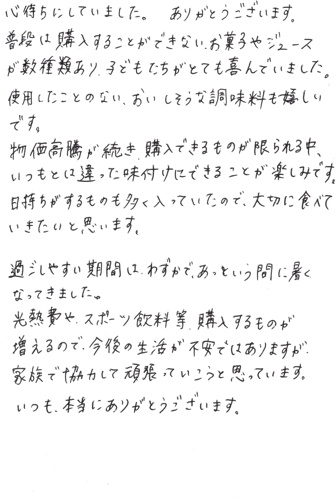 心待ちにしていました。 ありがとうございます。
普段は購入することができないお菓子やジュース
が数種類あり、子どもたちがとても喜んでいました。
使用したことのない、おいしそうな調味料も嬉しい
です。
物価高騰が続き、購入できるものが限られる中、
いつもとは違った味付けにできることが楽しみです。
日持ちがするものも多く入っていたので、大切に食べて
いきたいと思います。
過ごしやすい期間は、わずかで、あっという間に暑く
なってきました。
光熱費や、スポーツ飲料等、購入するものが
増えるので、今後の生活が不安ではありますが、
家族で協力して頑張っていこうと思っています。
いつも、本当にありがとうございます。